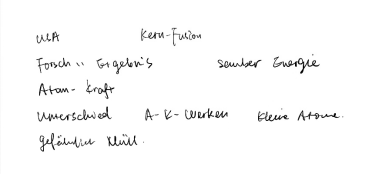 USA Kern-Fusion
Forsch" Ergebnis sauber Energie
Atom-Kraft
Unterschied A-K-Werken kleine Atome.
gefährlich Müll.